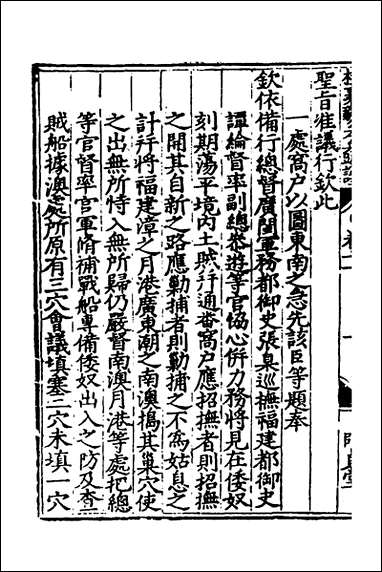 聖旨准議行欽此
一處窩户以圖東南之急先該臣等題奉
欽依備行總督廣閩軍務都御史張臬巡撫福建都御史
譚綸督率副總叅遊等官協心併力務將見在倭奴
刻期蕩平境内土賊并通畨窩户應招撫者則招撫
之開其自新之路應勦捕者則勦捕之不為姑息之
計并將福建漳之月港廣東潮之南澳搗其巢穴使
之出無所恃入無所歸仍嚴督南澳月港等處把總
等官督率官軍脩補戰船專備倭奴出入之防及查
賊船據澳處所原有三穴會議填塞二穴未填一穴